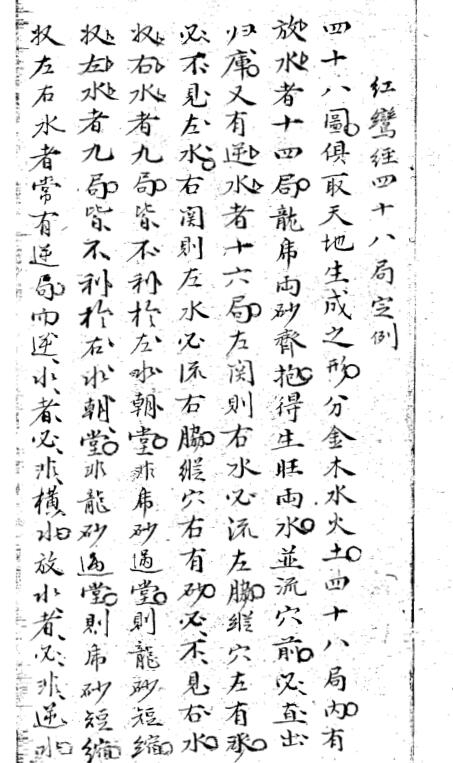 红鸞經四十八局定例
四十八圖俱取天地生成之形分金木水火土四十八局內有
放水者十四局龍虎兩砂齊抱得生旺兩水並流穴前必直出
归庫又有逆水者十六局左関則右水必流左脇縱穴左有砂
必不見左水右関則左水必流右脇縱穴右有砂必不見右水
収右水者九局皆不利於左水朝堂非虎砂過堂則龍砂短縮
収左水者九局皆不利於右水朝堂非龍砂過堂則虎砂短縮
収左右水者常有逆局而逆水者必非橫水放水者必非逆水